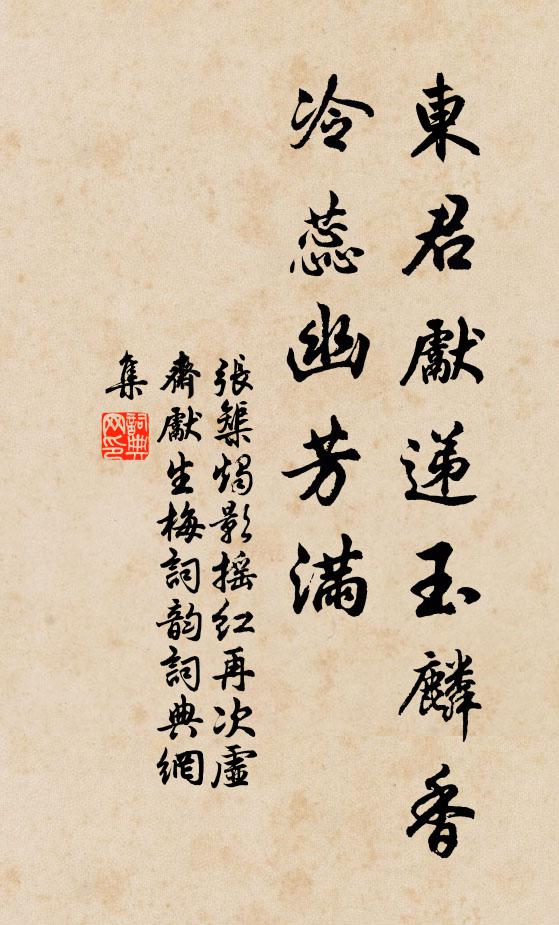 東君獻遞玉麟香
冷蕊幽芳滿
張榘燭影摇红再次虛
齋獻生梅詞韵詞典網
集
詞典
网印